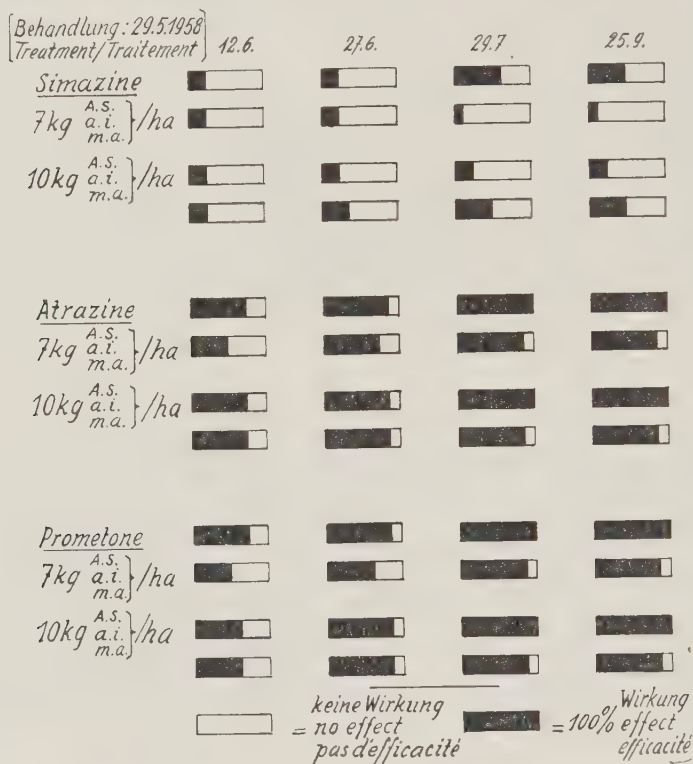 [Behandlung: 29.5.1958
Treatment/Traitement] 12.6. 27.6. 29.7 25.9.
Simazine
7kg A.S. a.i. m.a. }/ha
10kg A.S. a.i. m.a. }/ha
Atrazine
7kg A.S. a.i. m.a. }/ha
10kg A.S. a.i. m.a. }/ha
Prometone
7kg A.S. a.i. m.a. }/ha
10kg A.S. a.i. m.a. }/ha
= keine Wirkung
no effect
pas d'efficacité
= 100% Wirkung
effect
efficacité